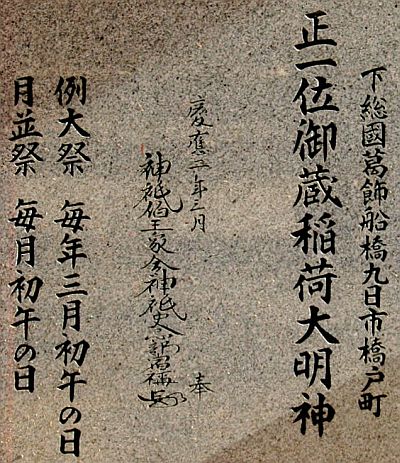 下総國葛飾船橋九日市橋戸町
正一位御蔵稲荷大明神
慶應三年二月
神祇伯王家令神祇史 奉
例大祭 毎年三月初午の日
月並祭 毎月初午の日